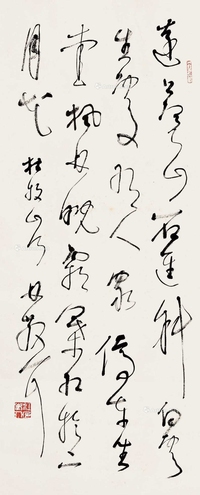 遠上寒山石逕斜白雲
生處有人家停車坐
愛楓林晚霜葉紅於二
月花 杜牧山行 林散耳